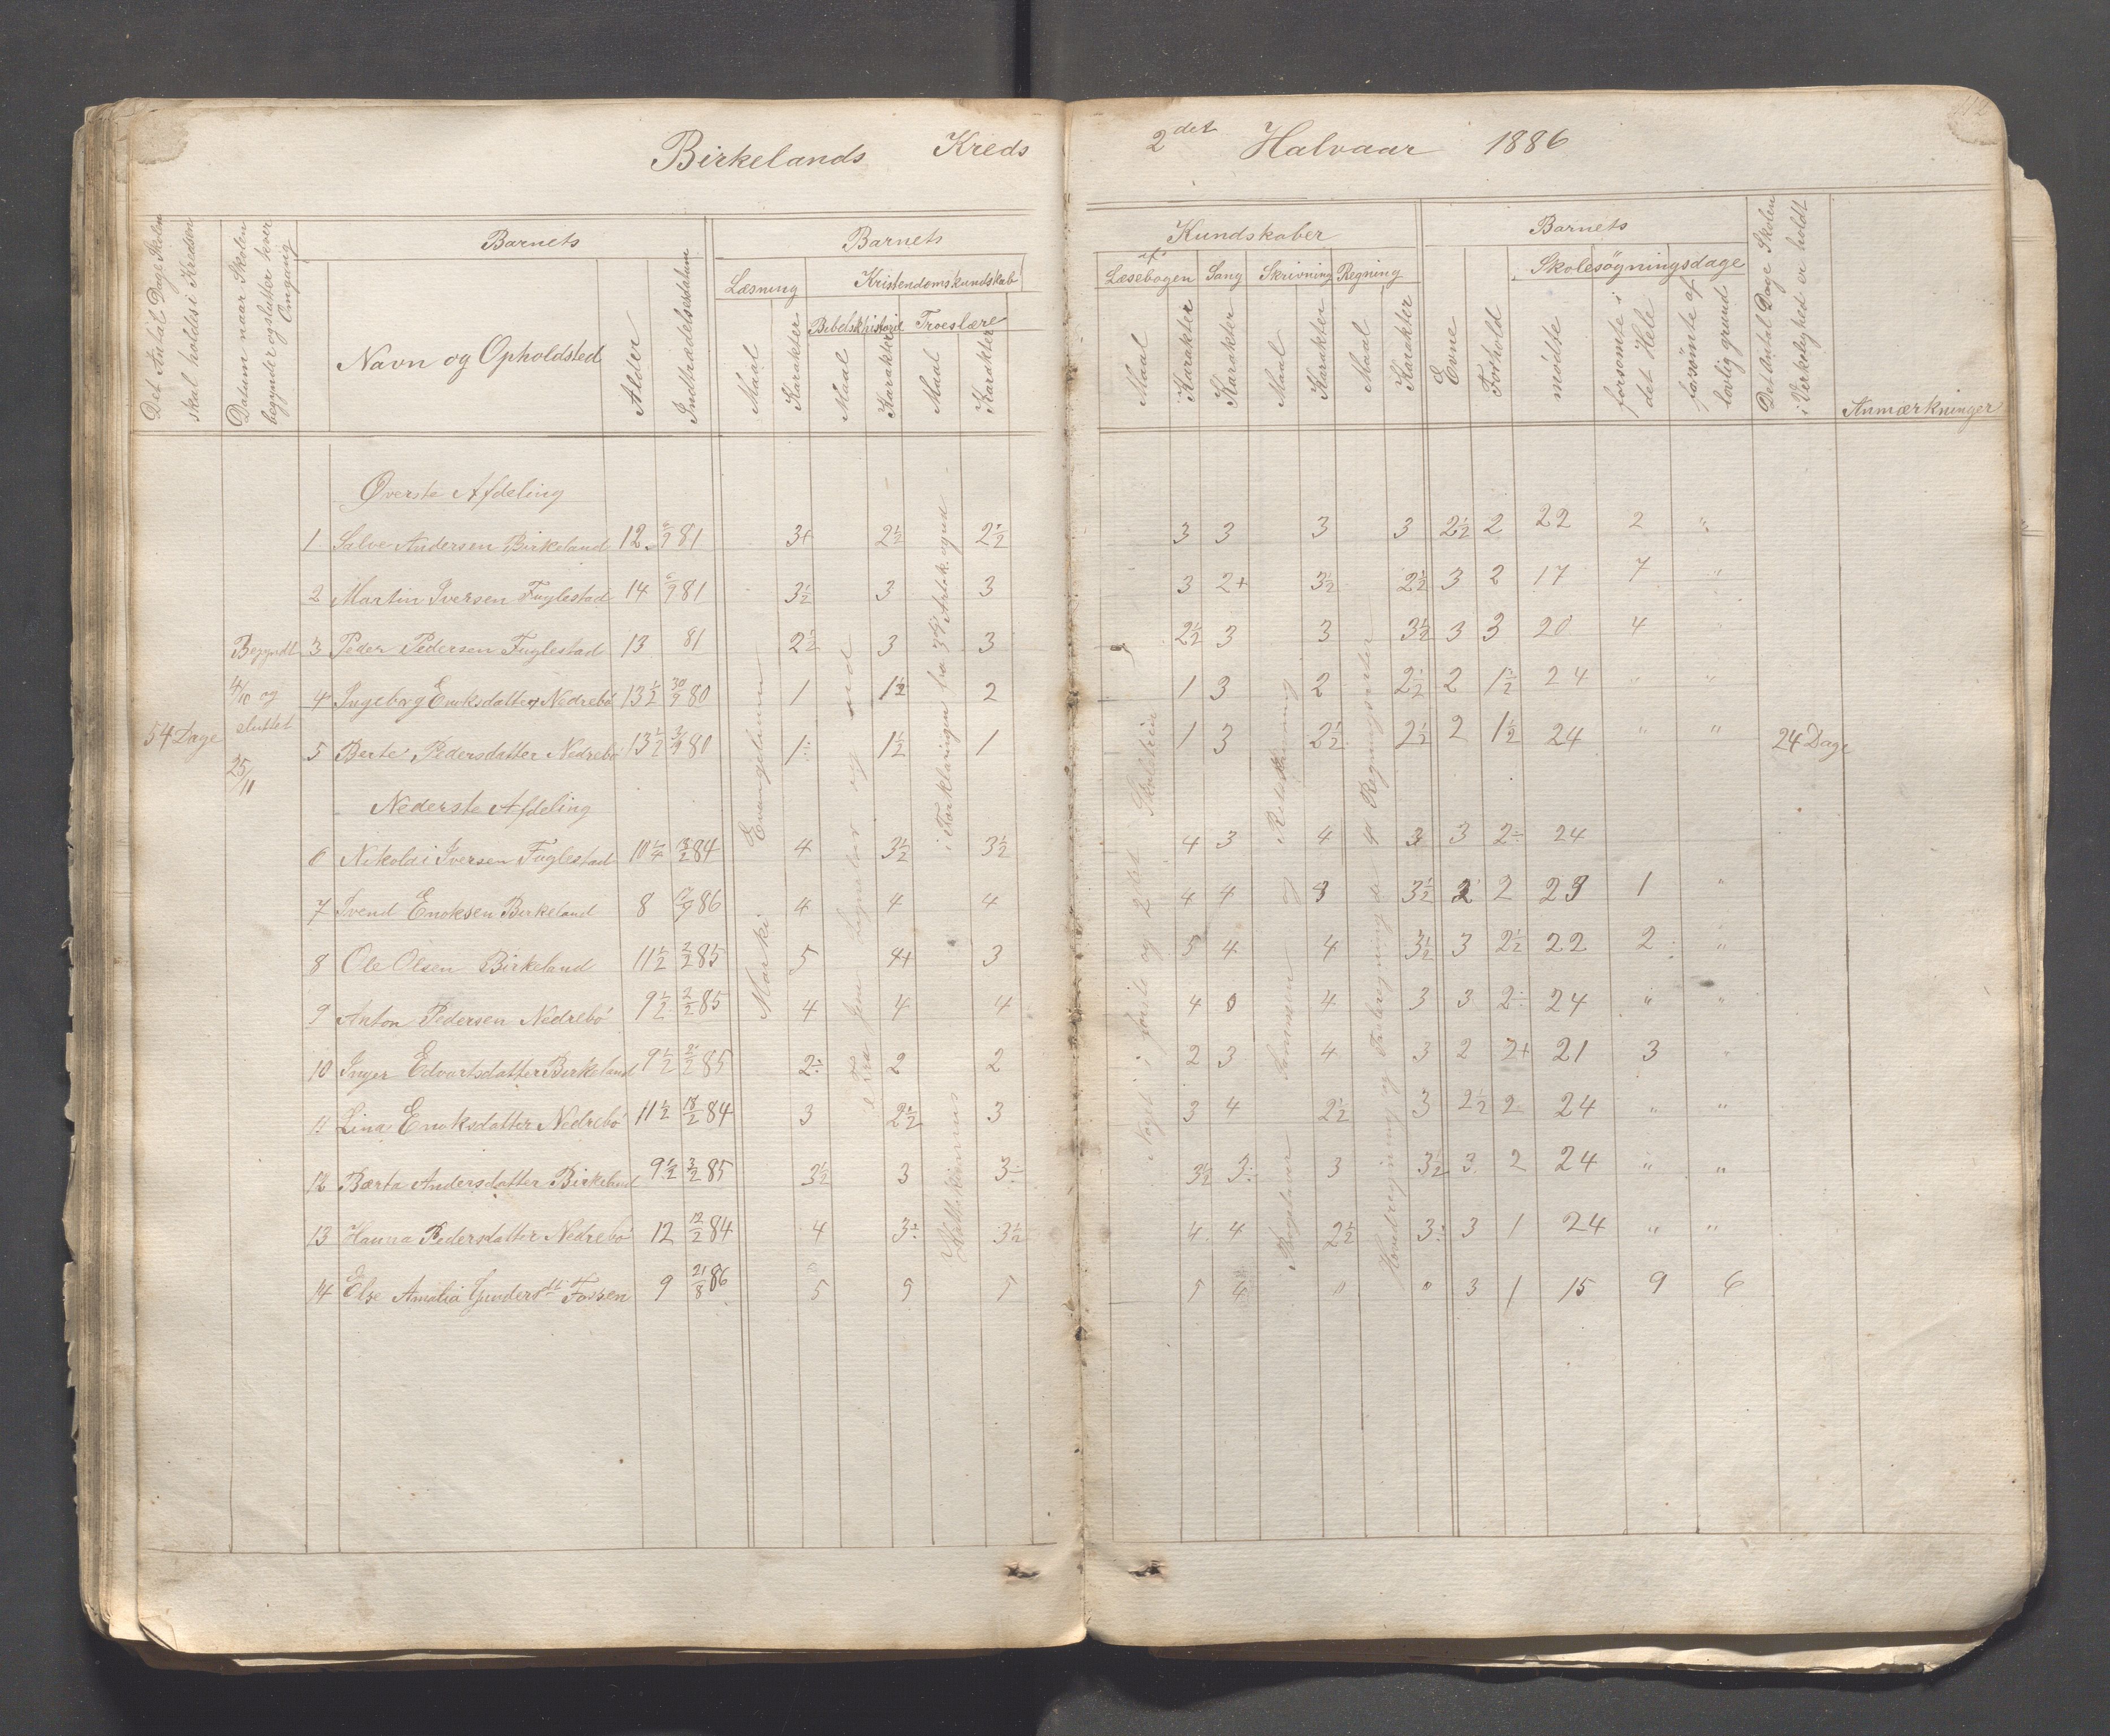 Birkelands Kreds 2det Halvaar 1886
Det Antal Dage Skolen skal holdes i Kredsen
Datum naar Skolen begynder og slutter hver Omgang
Barnets
Navn og Opholdsted
Alder
Indtrædelsesdatum
Barnets
Læsning
Maal
Karakter
Kristendomskundskab
Bibelskhistorie
Maal
Karakter
Troeslære
Maal
Karakter
Kundskaber
Læsebogen
Maal
Karakter
Sang
Karakter
Skrivning
Maal
Karakter
Regning
Maal
Karakter
Barnets
Evne
Forhold
Skolesögningsdage
mödte
forsömte i det Hele
forsömte af lovlig grund
Det Antal Dage Skolen i Virkelighed er holdt
Anmærkninger
54 Dage
Begyndt 4/10 og sluttet 25/11
Øverste Afdeling
1 Salve Andersen Birkeland 12 81 3+ 2½ 2½ 3 3 3 3 2½ 2 22 2 "
2 Martin Iversen Fuglestad 14 81 3½ 3 3 3 2+ 3½ 2½ 3 2 17 7 "
3 Peder Pedersen Fuglestad 13 81 2½ 3 3 2½ 3 3 3½ 3 3 20 4
4 Ingeborg Enoksdatter Nedrebö 13½ 30/9 80 1 1½ 2 1 3 2 2½ 2 1½ 24 " "
5 Berte Pedersdatter Nedrebö 13½ 80 1÷ 1½ 1 1 3 2½ 2½ 2 1½ 24 " " 24 Dage
Nederste Afdeling
6 Nikolai Iversen Fuglestad 10¼ 84 4 3½ 3½ 4 3 4 3 3 2÷ 24
7 Svend Enoksen Birkeland 8 17/9 86 4 4 4 4 4 3 3½ 2 2 23 1 "
8 Ole Olsen Birkeland 11½ 2/2 85 5 4+ 3 5 4 4 3½ 3 2½ 22 2 "
9 Anton Pedersen Nedrebö 9½ 2/2 85 4 4 4 4 0 4 3 3 2÷ 24 " "
10 Inger Edvartsdatter Birkeland 9½ 85 2÷ 2 2 2 3 4 3 2 2+ 21 3 "
11 Lina Enoksdatter Nedrebö 11½ 18/2 84 3 2½ 3 3 4 2½ 3 2½ 2 24 " "
12 Bærta Andersdatter Birkeland 9½ 3/2 85 3½ 3 3÷ 3½ 3÷ 3 3½ 3 2 24 " "
13 Hanna Pedersdatter Nedrebö 12 12/2 84 4 3÷ 3½ 4 4 2½ 3÷ 3 1 24 " "
14 Else Amalia Gundersdt. Fossen 9 21/8 86 5 5 5 5 4 " " 3 1 15 9 6
Marki Evangelium
i Forklaringen fra 3die Artik. og ud
Katekismus
Noget i förste og 2det Skoletrin
Bogstaver Sammen og Retskrivning
Hovedregning og Tavleregning de 4 Regningsarter